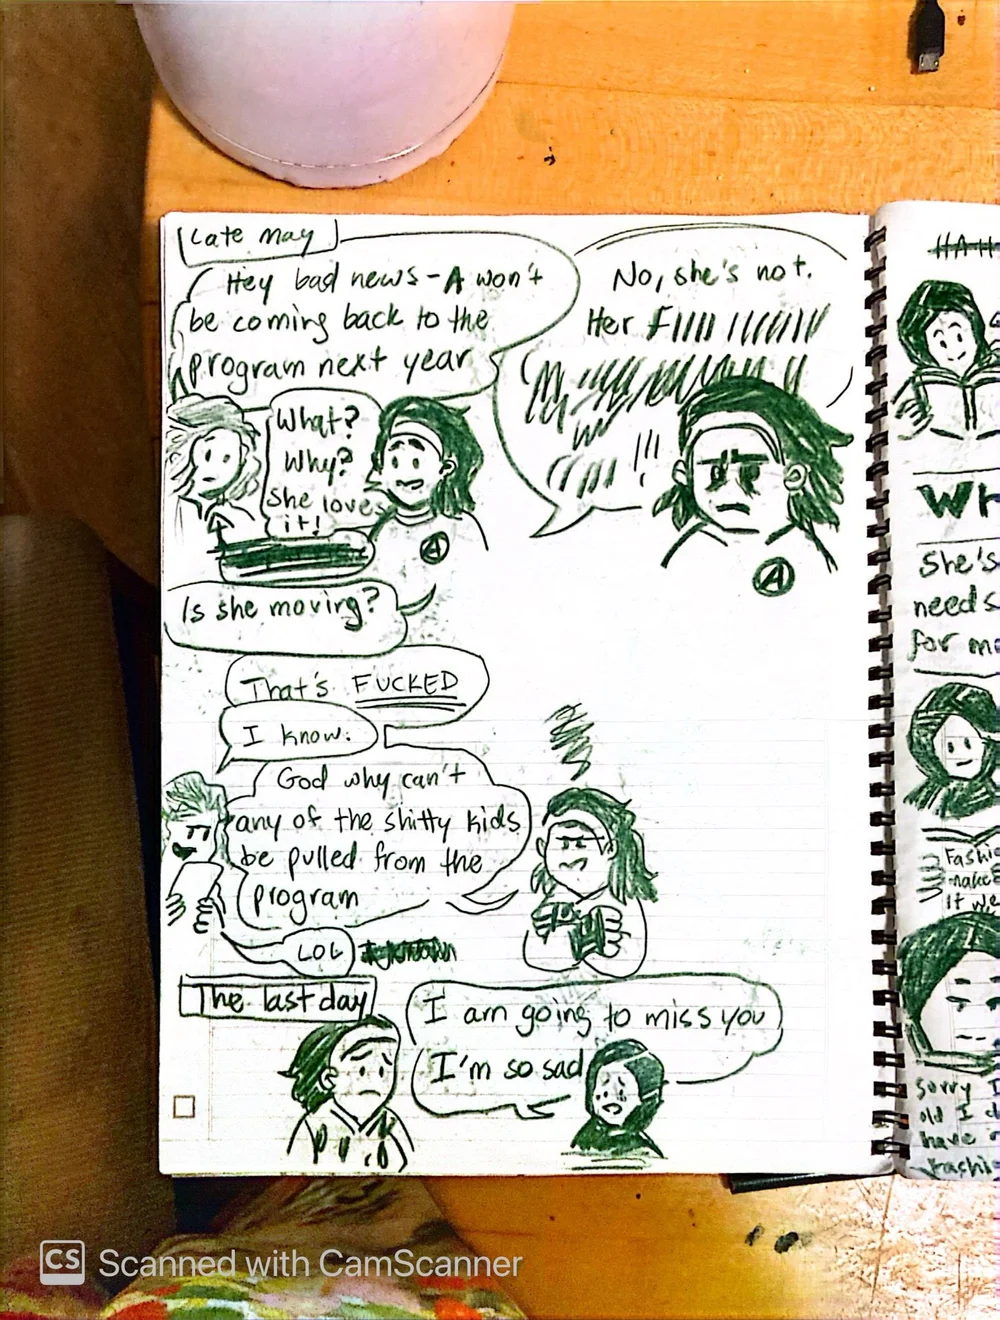 Late May
Hey bad news - A won't
be coming back to the
program next year
What?
Why?
She loves
it!
No, she's not.
Her
!!!
A
A
Is she moving?
That's FUCKED
I know.
God why can't
any of the shitty kids
be pulled from the
program
LOL
The last day
I am going to miss you
I'm so sad
HAH
WH
She's
needs
for me
Fashio
make
it we
sorry I
old I d
have
Fashio
CS Scanned with CamScanner